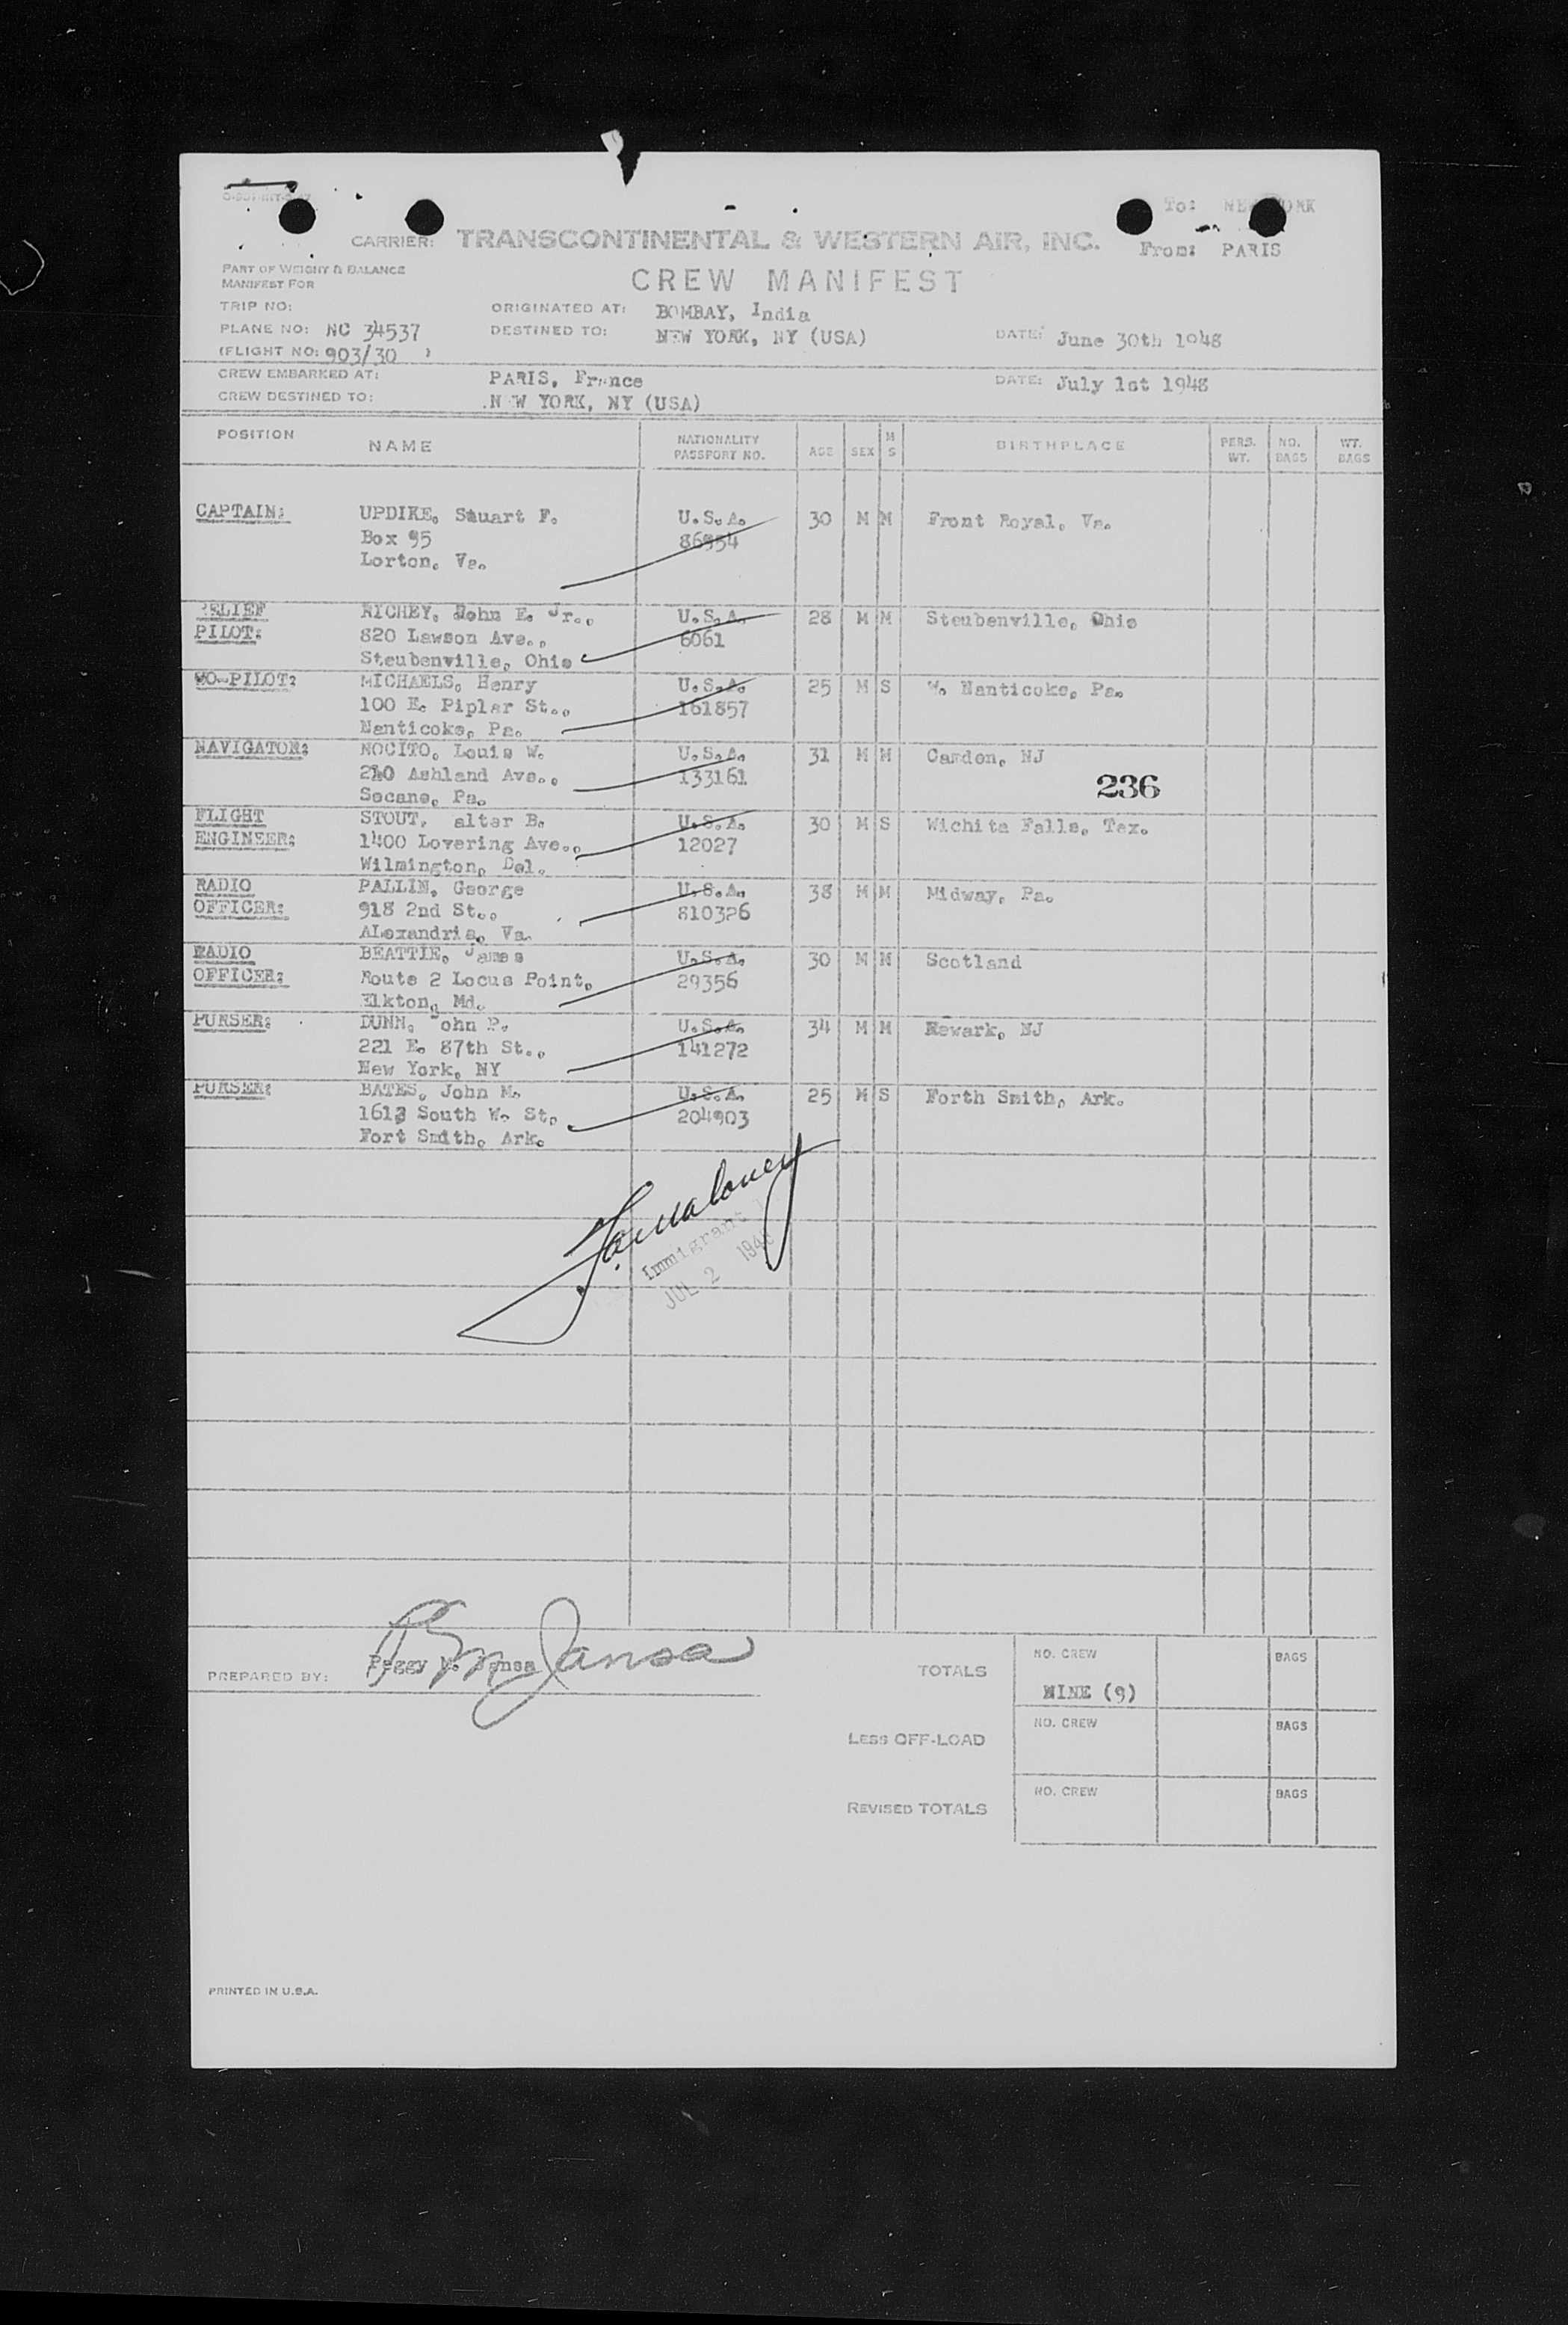 To: NEW YORK
CARRIER: TRANSCONTINENTAL & WESTERN AIR, INC.
From: PARIS
PART OF WEIGHT & BALANCE
MANIFEST FOR
CREW MANIFEST
TRIP NO:
ORIGINATED AT: BOMBAY, India
PLANE NO: NC 34537
DESTINED TO: NEW YORK, NY (USA)
DATE: June 30th 1948
(FLIGHT NO: 903/30 )
CREW EMBARKED AT: PARIS, France
DATE: July 1st 1948
CREW DESTINED TO: N W YORK, NY (USA)
POSITION NAME NATIONALITY PASSPORT NO. AGE SEX M S BIRTHPLACE PERS. WT. NO. BAGS WT. BAGS
CAPTAIN: UPDIKE, Stuart F. U.S.A. 30 M M Front Royal, Va.
Box 95 86954
Lorton, Va.
RELIEF RICHEY, John E. Jr., U.S.A. 28 M M Steubenville, Ohio
PILOT: 820 Lawson Ave., 6061
Steubenville, Ohio
CO-PILOT: MICHAELS, Henry U.S.A. 25 M S W. Nanticoke, Pa.
100 E. Piplar St., 161857
Nanticoke, Pa.
NAVIGATOR: NOCITO, Louis W. U.S.A. 31 M M Camden, NJ
210 Ashland Ave., 133161
236
Secane, Pa.
FLIGHT STOUT, alter B. U.S.A. 30 M S Wichita Falls, Tex.
ENGINEER: 1400 Lovering Ave., 12027
Wilmington, Del.
RADIO PALLIN, George U.S.A. 38 M M Midway, Pa.
OFFICER: 918 2nd St., 810326
ALexandria, Va.
RADIO BEATTIE, James U.S.A. 30 M M Scotland
OFFICER: Route 2 Locus Point, 29356
Elkton, Md.
PURSER: DUNN, John P. U.S.A. 34 M M Newark, NJ
221 E. 87th St., 141272
New York, NY
PURSER: BATES, John M. U.S.A. 25 M S Forth Smith, Ark.
1613 South W. St. 204903
Fort Smith, Ark.
Immigrant
JUL 2 1948
PREPARED BY: Peggy M. Jansa
TOTALS NO. CREW BAGS
NINE (9)
LESS OFF-LOAD NO. CREW BAGS
REVISED TOTALS NO. CREW BAGS
PRINTED IN U.S.A.